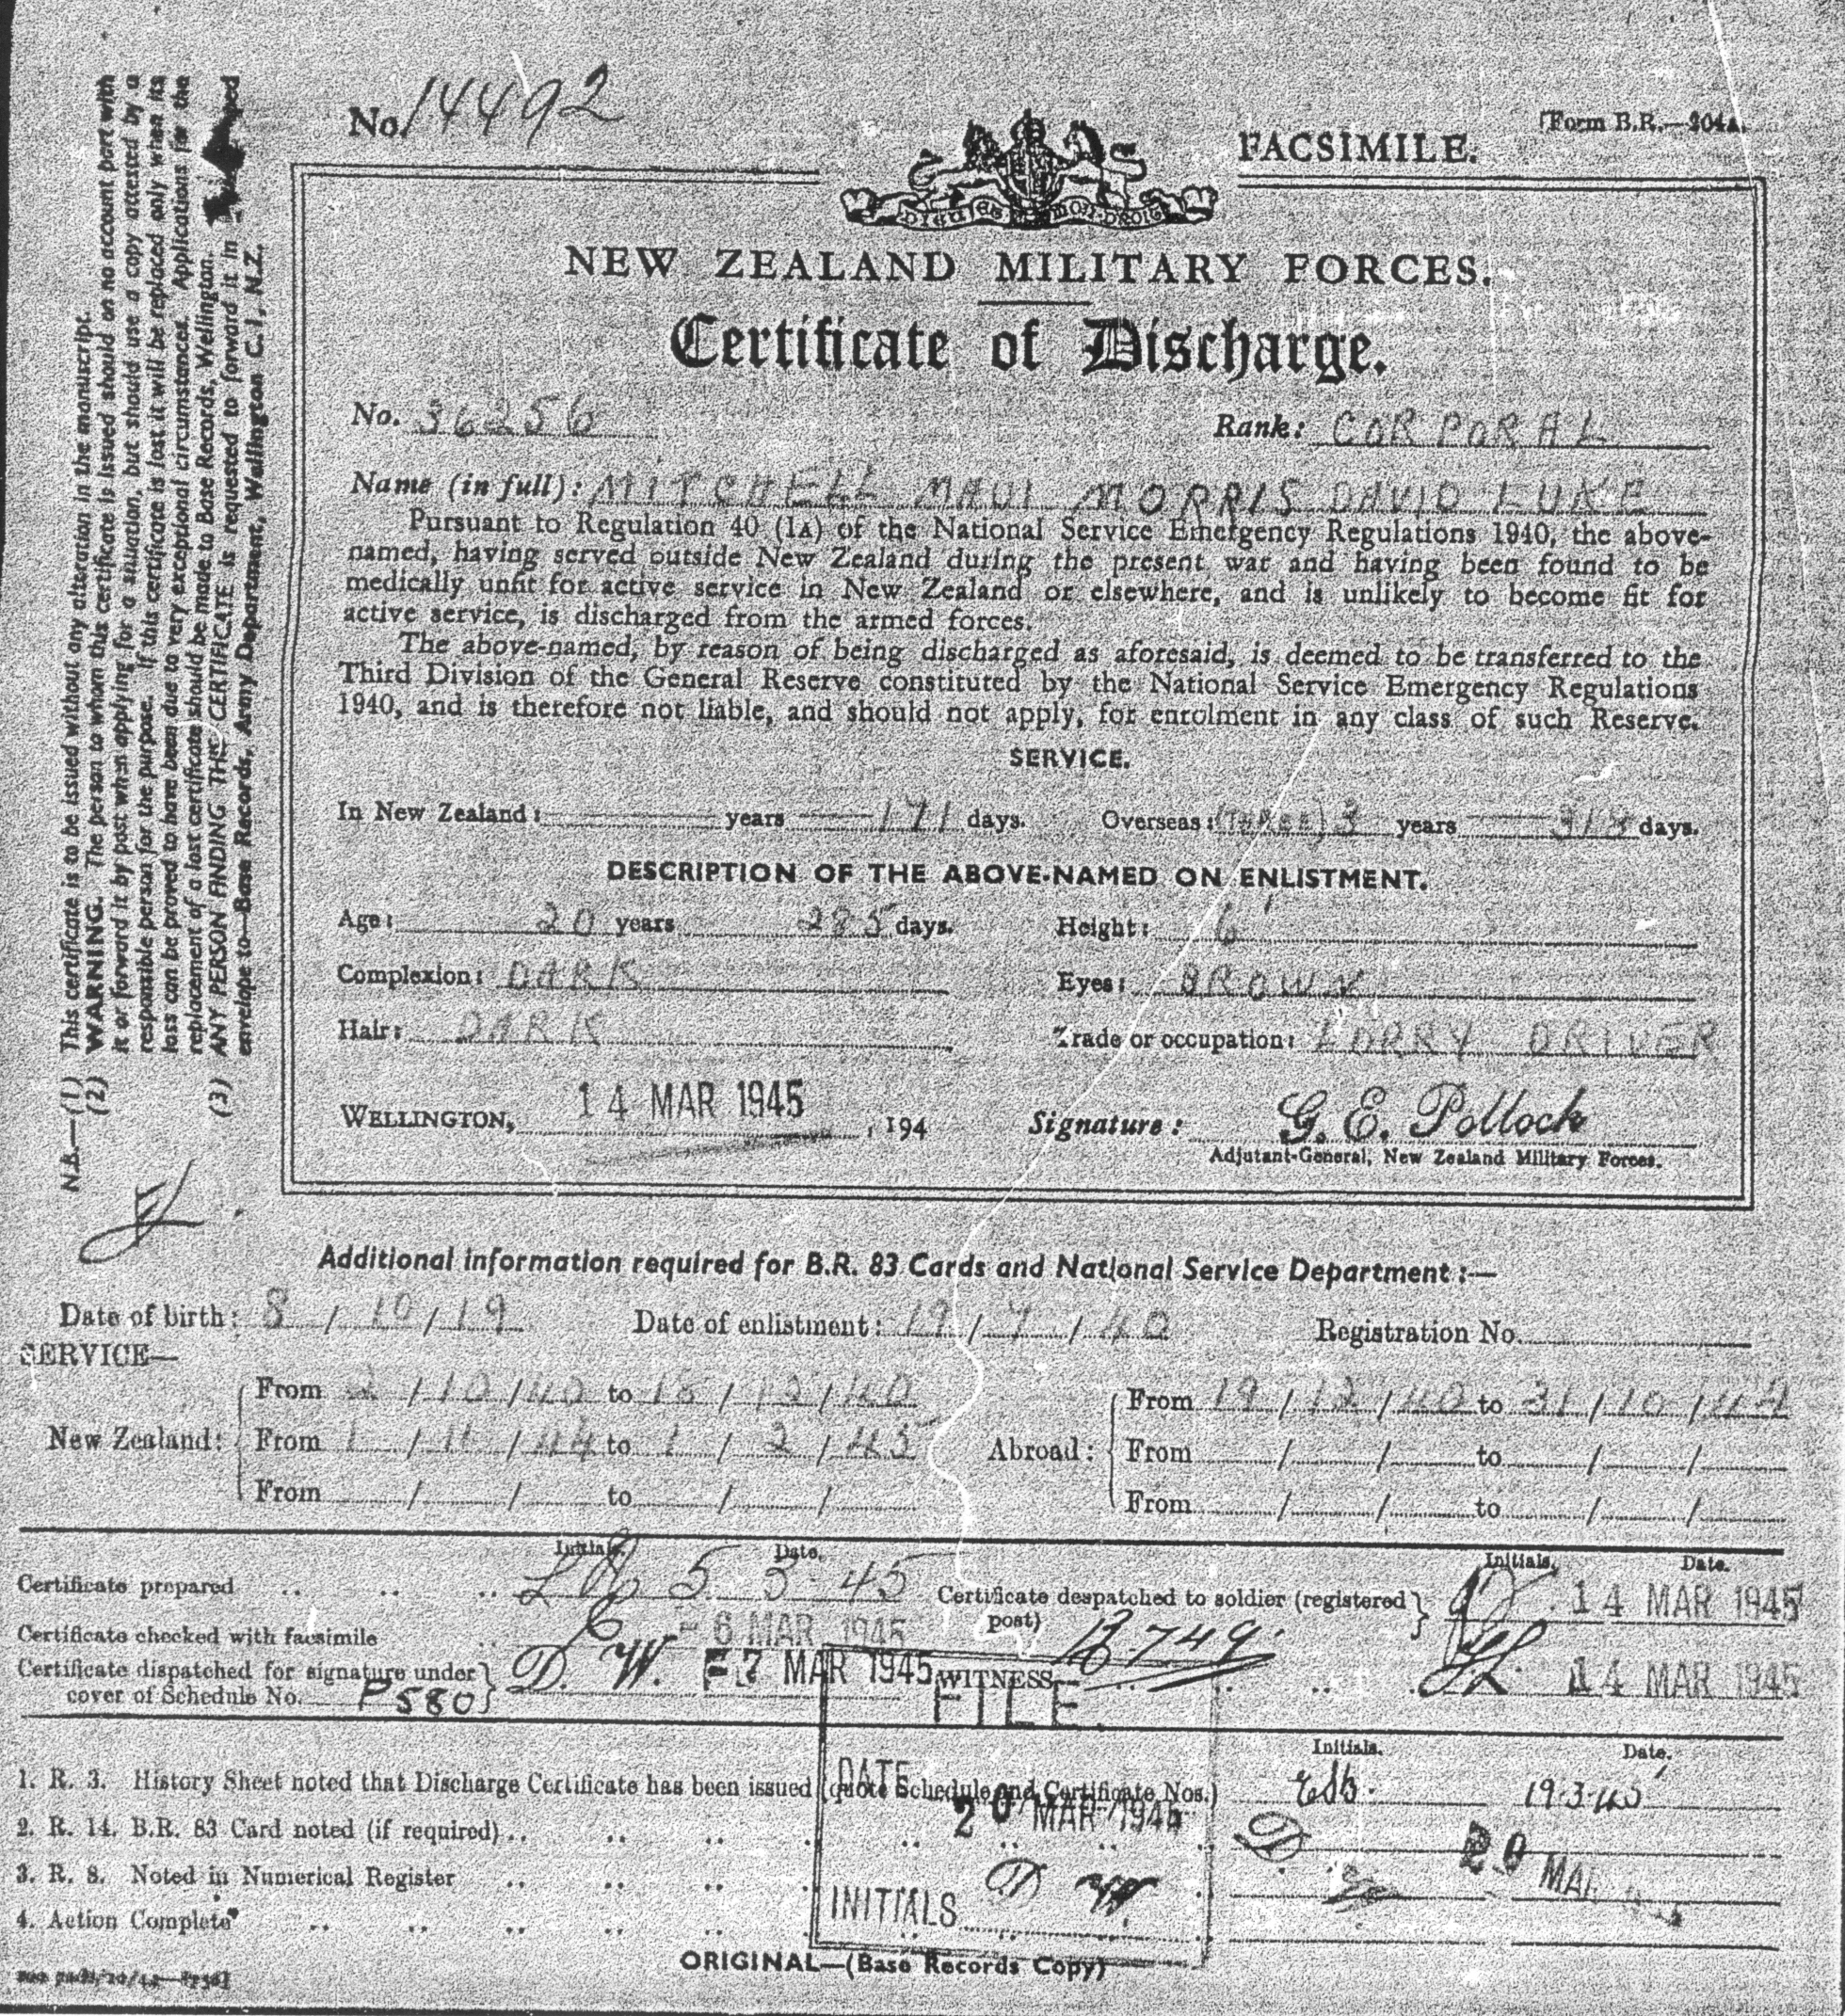 No. 14492
FACSIMILE.
[Form B.R.—204A.
DIEU ET MON DROIT
NEW ZEALAND MILITARY FORCES.
Certificate of Discharge.
No. 36256 Rank: CORPORAL
Name (in full): MITCHELL MAUI MORRIS DAVID LUKE
Pursuant to Regulation 40 (1A) of the National Service Emergency Regulations 1940, the above-
named, having served outside New Zealand during the present war and having been found to be
medically unfit for active service in New Zealand or elsewhere, and is unlikely to become fit for
active service, is discharged from the armed forces.
The above-named, by reason of being discharged as aforesaid, is deemed to be transferred to the
Third Division of the General Reserve constituted by the National Service Emergency Regulations
1940, and is therefore not liable, and should not apply, for enrolment in any class of such Reserve.
SERVICE.
In New Zealand: years 171 days. Overseas: (THREE) 3 years days.
DESCRIPTION OF THE ABOVE-NAMED ON ENLISTMENT.
Age: 20 years 285 days. Height: 6'
Complexion: DARK Eyes: BROWN
Hair: DARK Trade or occupation: LORRY DRIVER
WELLINGTON, 14 MAR 1945, 194 Signature: G. E. Pollock
Adjutant-General, New Zealand Military Forces.
N.B.—(1) This certificate is to be issued without any alteration in the manuscript.
(2) WARNING. The person to whom this certificate is issued should on no account part with
it or forward it by post when applying for a situation, but should use a copy attested by a
responsible person for the purpose. If this certificate is lost it will be replaced only when its
loss can be proved to have been due to very exceptional circumstances. Applications for the
replacement of a lost certificate should be made to Base Records, Wellington.
(3) ANY PERSON FINDING THE CERTIFICATE is requested to forward it in
envelope to—Base Records, Army Department, Wellington C.1, N.Z.
Additional information required for B.R. 83 Cards and National Service Department:—
Date of birth: 8 / 10 / 19 Date of enlistment: 19 / 7 / 40 Registration No.
SERVICE—
New Zealand: From 2 / 10 / 40 to 18 / 12 / 40 Abroad: From 19 / 12 / 40 to 31 / 10 / 44
From 1 / 11 / 44 to 1 / 2 / 45 From / / to / /
From / / to / / From / / to / /
Initials. Date. Initials. Date.
Certificate prepared 5 3 45 Certificate despatched to soldier (registered post) 14 MAR 1945
Certificate checked with facsimile - 6 MAR 1945 B749
Certificate dispatched for signature under cover of Schedule No. P580 D. W. 7 MAR 1945 WITNESS 14 MAR 1945
FILE
DATE
20 MAR 1945
INITIALS D W
Initials. Date.
1. R. 3. History Sheet noted that Discharge Certificate has been issued (quote Schedule and Certificate Nos.) 19.3.45
2. R. 14. B.R. 83 Card noted (if required) 20 MAR
3. R. 8. Noted in Numerical Register
4. Action Complete
ORIGINAL—(Base Records Copy)